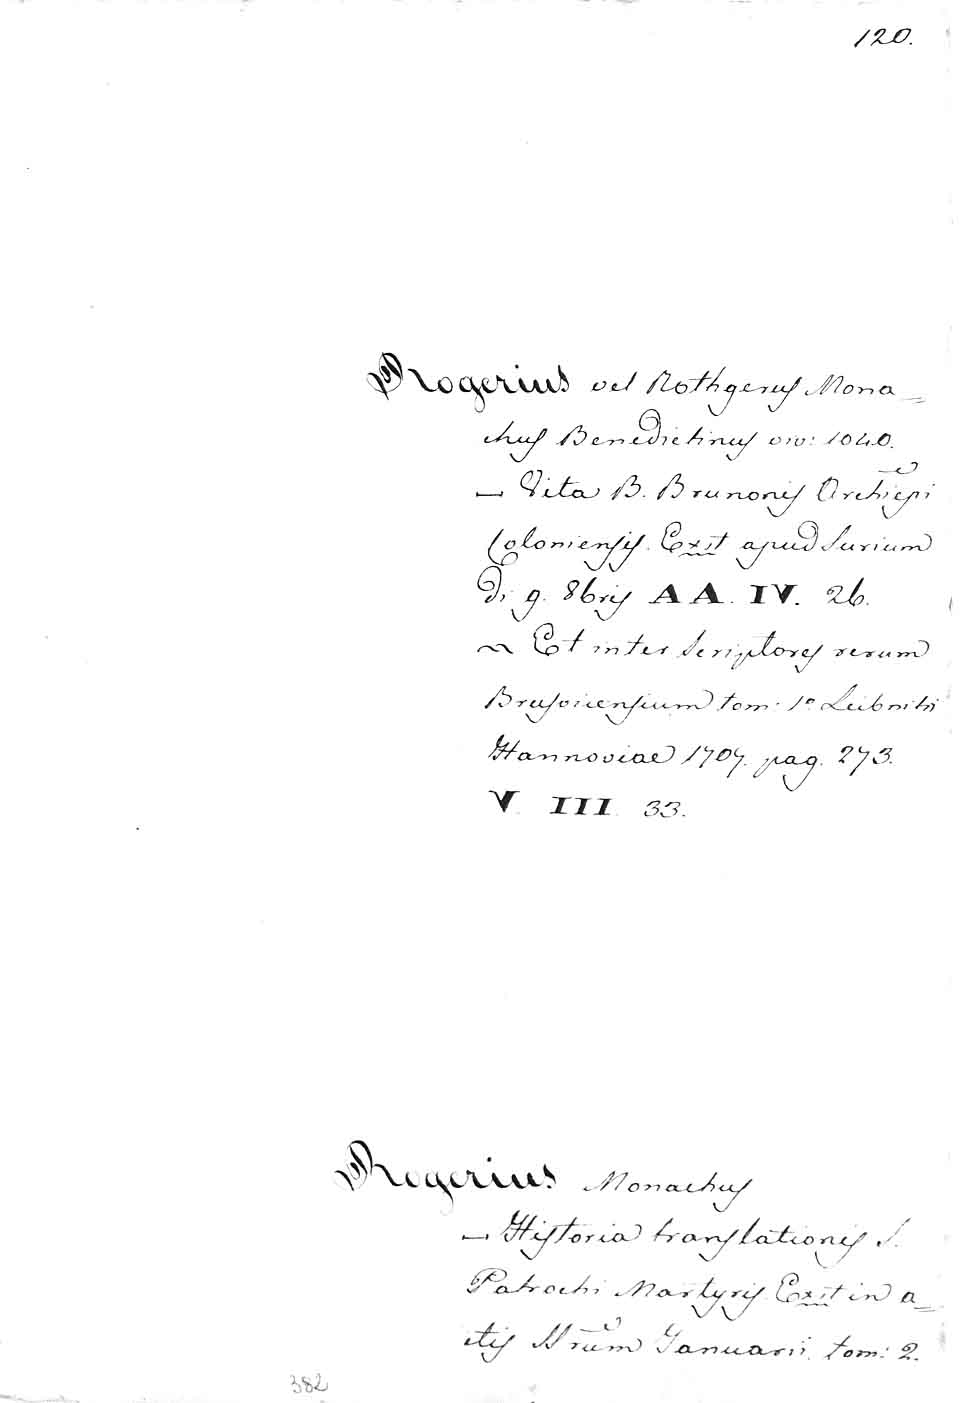 120.
Rogerius vel Rothgerus Mona_
chus Benedictinus viv: 1040.
— Vita B. Brunonis Archiepi
Coloniensis. Exit apud Surium
Di 9. 8bris AA. IV. 26.
~ Et inter Scriptores rerum
Brusvicensium tom: 1º Leibnitii
Hannoviae 1707. pag. 273.
V. III. 33.
Rogerius Monachus
— Historia translationis S.
Patrochi Martyris Exit in a_
ctis SSrum Januarii. tom: 2.
382